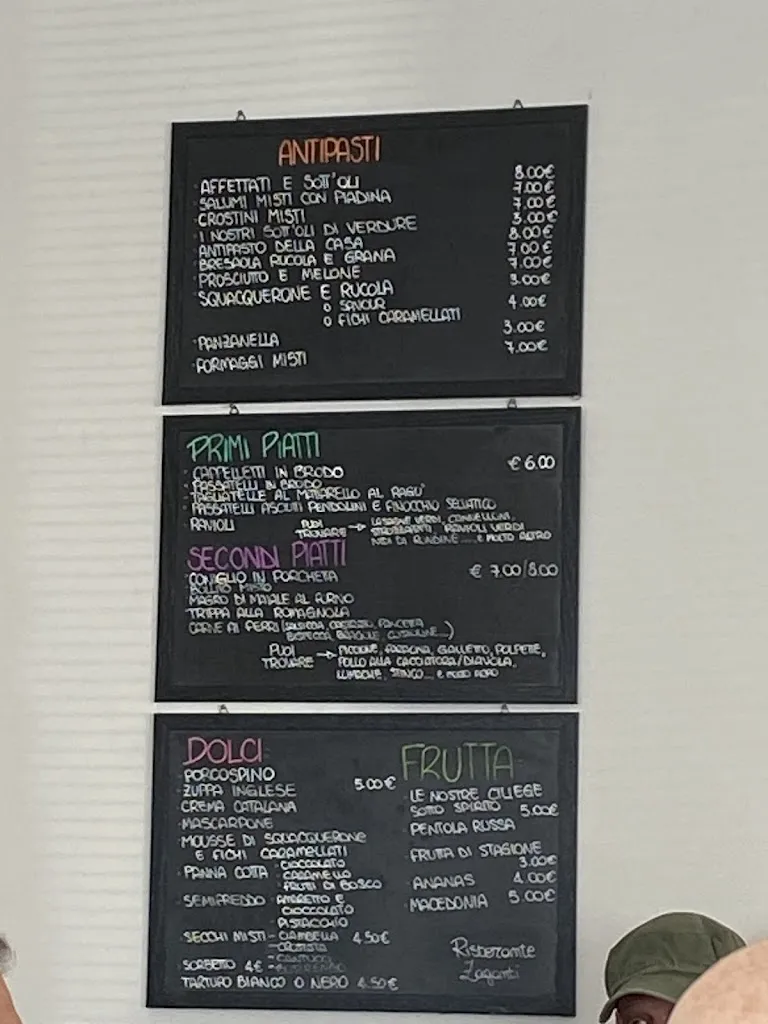 ANTIPASTI
AFFETTATI E SOTT'OLI 8.00€
SALUMI MISTI CON PIADINA 7.00€
CROSTINI MISTI 7.00€
I NOSTRI SOTT'OLI DI VERDURE 3.00€
ANTIPASTO DELLA CASA 8.00€
BRESAOLA RUCOLA E GRANA 7.00€
PROSCIUTTO E MELONE 7.00€
SQUACQUERONE E RUCOLA 3.00€
O SAVOUR 4.00€
O FICHI CARAMELLATI
PANZANELLA 3.00€
FORMAGGI MISTI 7.00€
PRIMI PIATTI
CAPPELLETTI IN BRODO € 6.00
PASSATELLI IN BRODO
TAGLIATELLE AL MATTARELLO AL RAGU'
PASSATELLI ASCIUTTI PENDOLINI E FINOCCHIO SELVATICO
RAVIOLI
PUOI TROVARE → LASAGNE VERDI, CANNELLONI,
STROZZAPRETI, RAVIOLI VERDI
NIDI DI RONDINE .... E MOLTO ALTRO
SECONDI PIATTI
CONIGLIO IN PORCHETTA € 7.00/8.00
BOLLITO MISTO
MAGRO DI MAIALE AL FORNO
TRIPPA ALLA ROMAGNOLA
CARNE AI FERRI (SALSICCIA, CASTRATO, PANCETTA
BISTECCA, BRACIOLE, ...)
PUOI TROVARE → PICCIONE, FARAONA, GALLETTO, POLPETTE,
POLLO ALLA CACCIATORA/DIAVOLA,
LUMACHE, STINCO... E MOLTO ALTRO
DOLCI
PORCOSPINO
ZUPPA INGLESE 5.00€
CREMA CATALANA
MASCARPONE
MOUSSE DI SQUACQUERONE
E FICHI CARAMELLATI
PANNA COTTA - CIOCCOLATO
CARAMELLO
FRUTTI DI BOSCO
SEMIFREDDO AMARETTO E
CIOCCOLATO
PISTACCHIO
SECCHI MISTI - CIAMBELLA 4.50€
- CROSTATA
- CANTUCCI
SORBETTO 4€
TARTUFO BIANCO O NERO 4.50€
FRUTTA
LE NOSTRE CILIEGE
SOTTO SPIRITO 5.00€
PENTOLA RUSSA
FRUTTA DI STAGIONE
3.00€
ANANAS 4.00€
MACEDONIA 5.00€
Ristorante